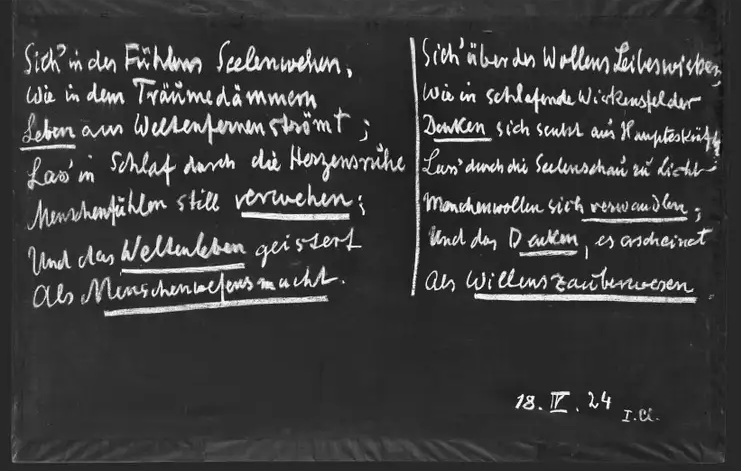 Sieh' in des Fühlens Seelenwehen,
Wie in dem Träumedämmern
Leben aus Weltenfernen strömt;
Lass' in Schlaf durch die Herzensruhe
Menschenfühlen still verwehen;
Und das Weltenleben geistert
Als Menschenwesensmacht.
Sieh' über des Wollens Leibeswirken,
Wie in schlafende Wirkensfelder
Denken sich senkt aus Haupteskräften
Lass' durch die Seelenschau zu Licht
Menschenwollen sich verwandlen;
Und das Denken, es erscheinet
Als Willenszauberwesen.
18. IV. 24
I. Cl.